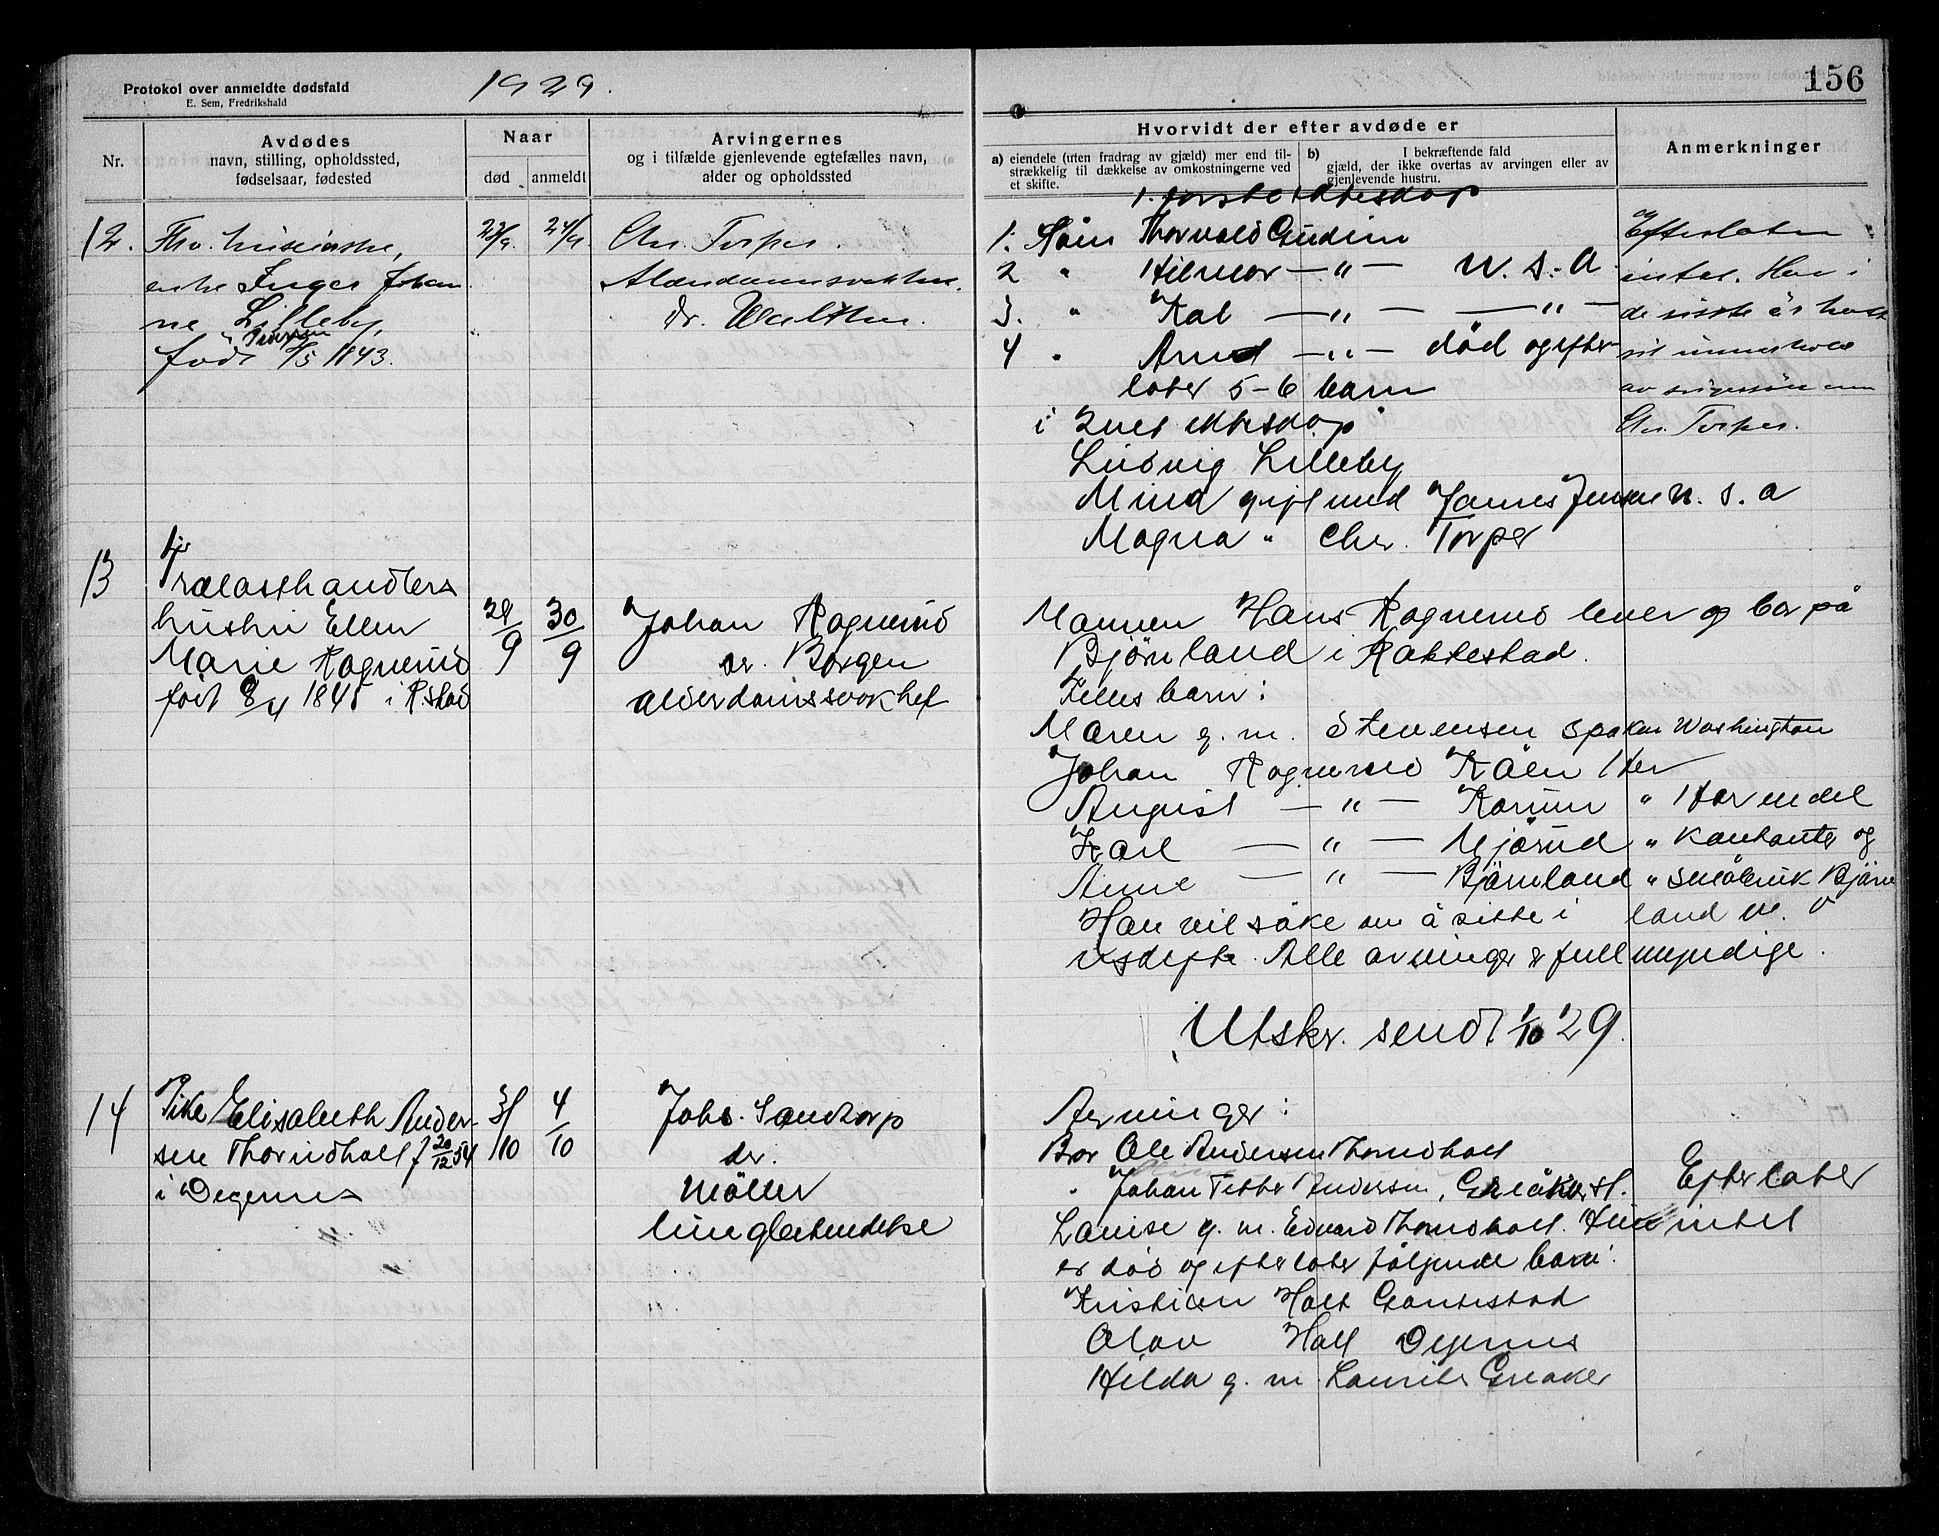 Protokol over anmeldte dødsfald
E. Sem, Fredrikshald
1929.
156
Nr.
Avdødes
navn, stilling, opholdssted,
fødselsaar, fødested
Naar
død
anmeldt
Arvingernes
og i tilfælde gjenlevende egtefælles navn,
alder og opholdssted
Hvorvidt der efter avdøde er
a) eiendele (uten fradrag av gjæld) mer end til-
strækkelig til dækkelse av omkostningerne ved
et skifte.
b) I bekræftende fald
gjæld, der ikke overtas av arvingen eller av
gjenlevende hustru.
Anmerkninger
12.
enke Inger Johan
ne Lilleby,
Pedersen
født /5 1843.
22/9.
24/9.
Chr. Torper.
Dr. Walther.
1. første ektesdap
1. Søn Thorvald Gudim
2 " Hilmar — " — U. S. A.
3. " Kal — " — — " —
4 " Arnd — " — død og efter
later 5-6 barn
i 2net ektesdap
Ludvig Lilleby
Mina gift med James Jensen U. S. A
Magna " Chr. Torper
Efterlater
intet. Har i
de siste år hatt
sit underhold
av svigersönnen
Chr. Torper.
13
fhv
Trælasthandlers
hustru Ellen
Marie Ragnerud
født 8/4 1845 i R.stad
29/9
30/9
Johan Ragnerud
dr. Borgen
alderdomssvakhet
Mannen Hans Ragnerud lever og bor på
Bjørnland i Rakkestad.
Felles barn:
Maren g. m. Stevensen Spokan Washington
Johan Ragnerud Kåen Her
August — " — Karun " Harendel
Karl — " — Mjørud "
Anne — " — Bjørnland " småbruk Bjørn
Han vil søke om å sitte i land
uskifte. Alle arvinger er fullmyndige.
Utskr. sendt 1/10 29.
14
Pike Elisabeth Ander-
sen Thorndholt f 20/12 54
i Degernes
3/10
4/10
Johs. Sandtorp
dr.
Møller
lungebetendelse
Arvinger:
Bror Ole Andersen Thorndholt
" Johan Petter Andersen, Greåker st.
Lovise g. m. Edvard Thorndholt. Hun
er død og efterlater følgende barn:
Kristian Holt Gautestad
Olav Holt Degernes
Hilda g. m. Laurits Greaker
Efterlater
intet